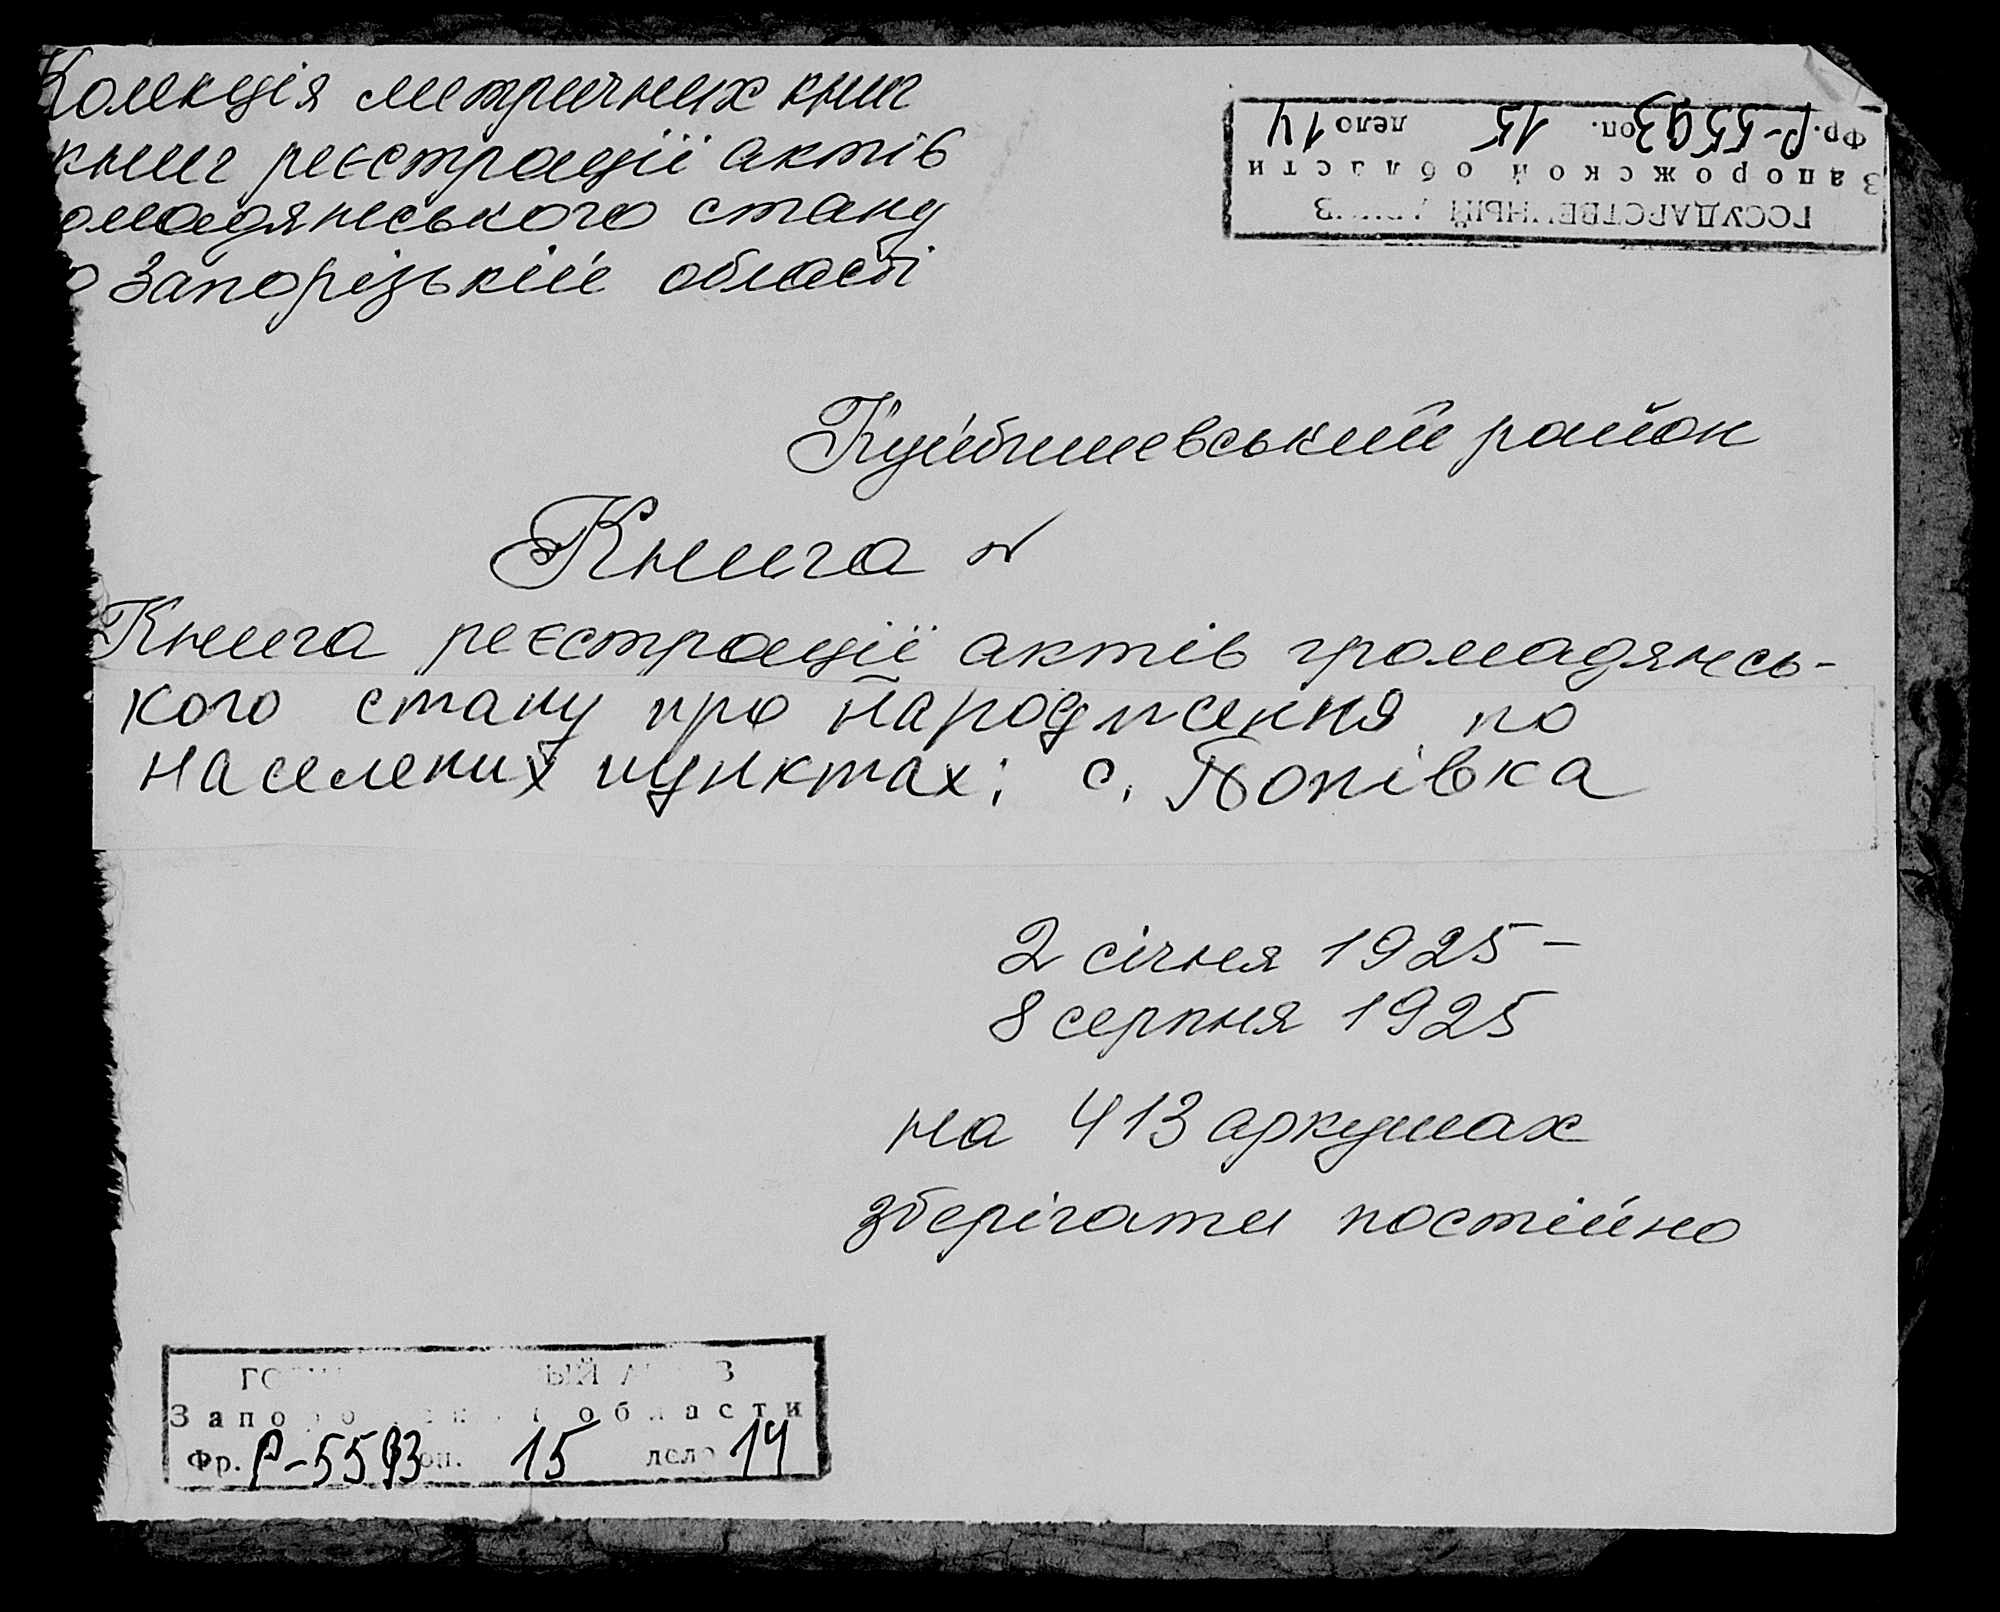 Колекція метричних книг
книг реєстрації актів
омадянського стану
о Запорізькій області
Фр. Р-5593 оп. 15 дело 14
Запорожской области
ГОСУДАРСТВЕННЫЙ АРХИВ
Куйбишевський район
Книга №
Книга реєстрації актів громадянсь-
кого стану про народження по
населених пунктах: с. Попівка
2 січня 1925 –
8 серпня 1925
на 413 аркушах
зберігати постійно
ГОСУДАРСТВЕННЫЙ АРХИВ
Запорожской области
Фр. Р-5593 оп. 15 дело 14